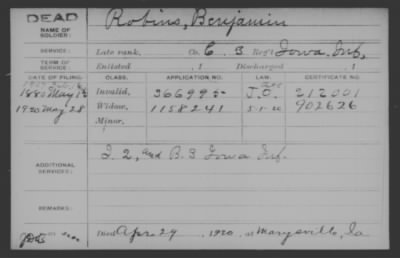 DEAD
NAME OF SOLDIER:
Robins, Benjamin
SERVICE:
Late rank, Co. C. 3 Reg't Iowa Inf,
TERM OF SERVICE:
Enlisted , 1 Discharged , 1
DATE OF FILING. CLASS. APPLICATION NO. LAW. CERTIFICATE NO.
1880 May Invalid, 366995 J.O. 212001
1920 May 28 Widow, 1158241 5-1-20 902626
Minor,
ADDITIONAL SERVICES:
I. 2, and B. 3 Iowa Inf.
REMARKS:
Died Apr. 29, 1920, at Marysville, Ia